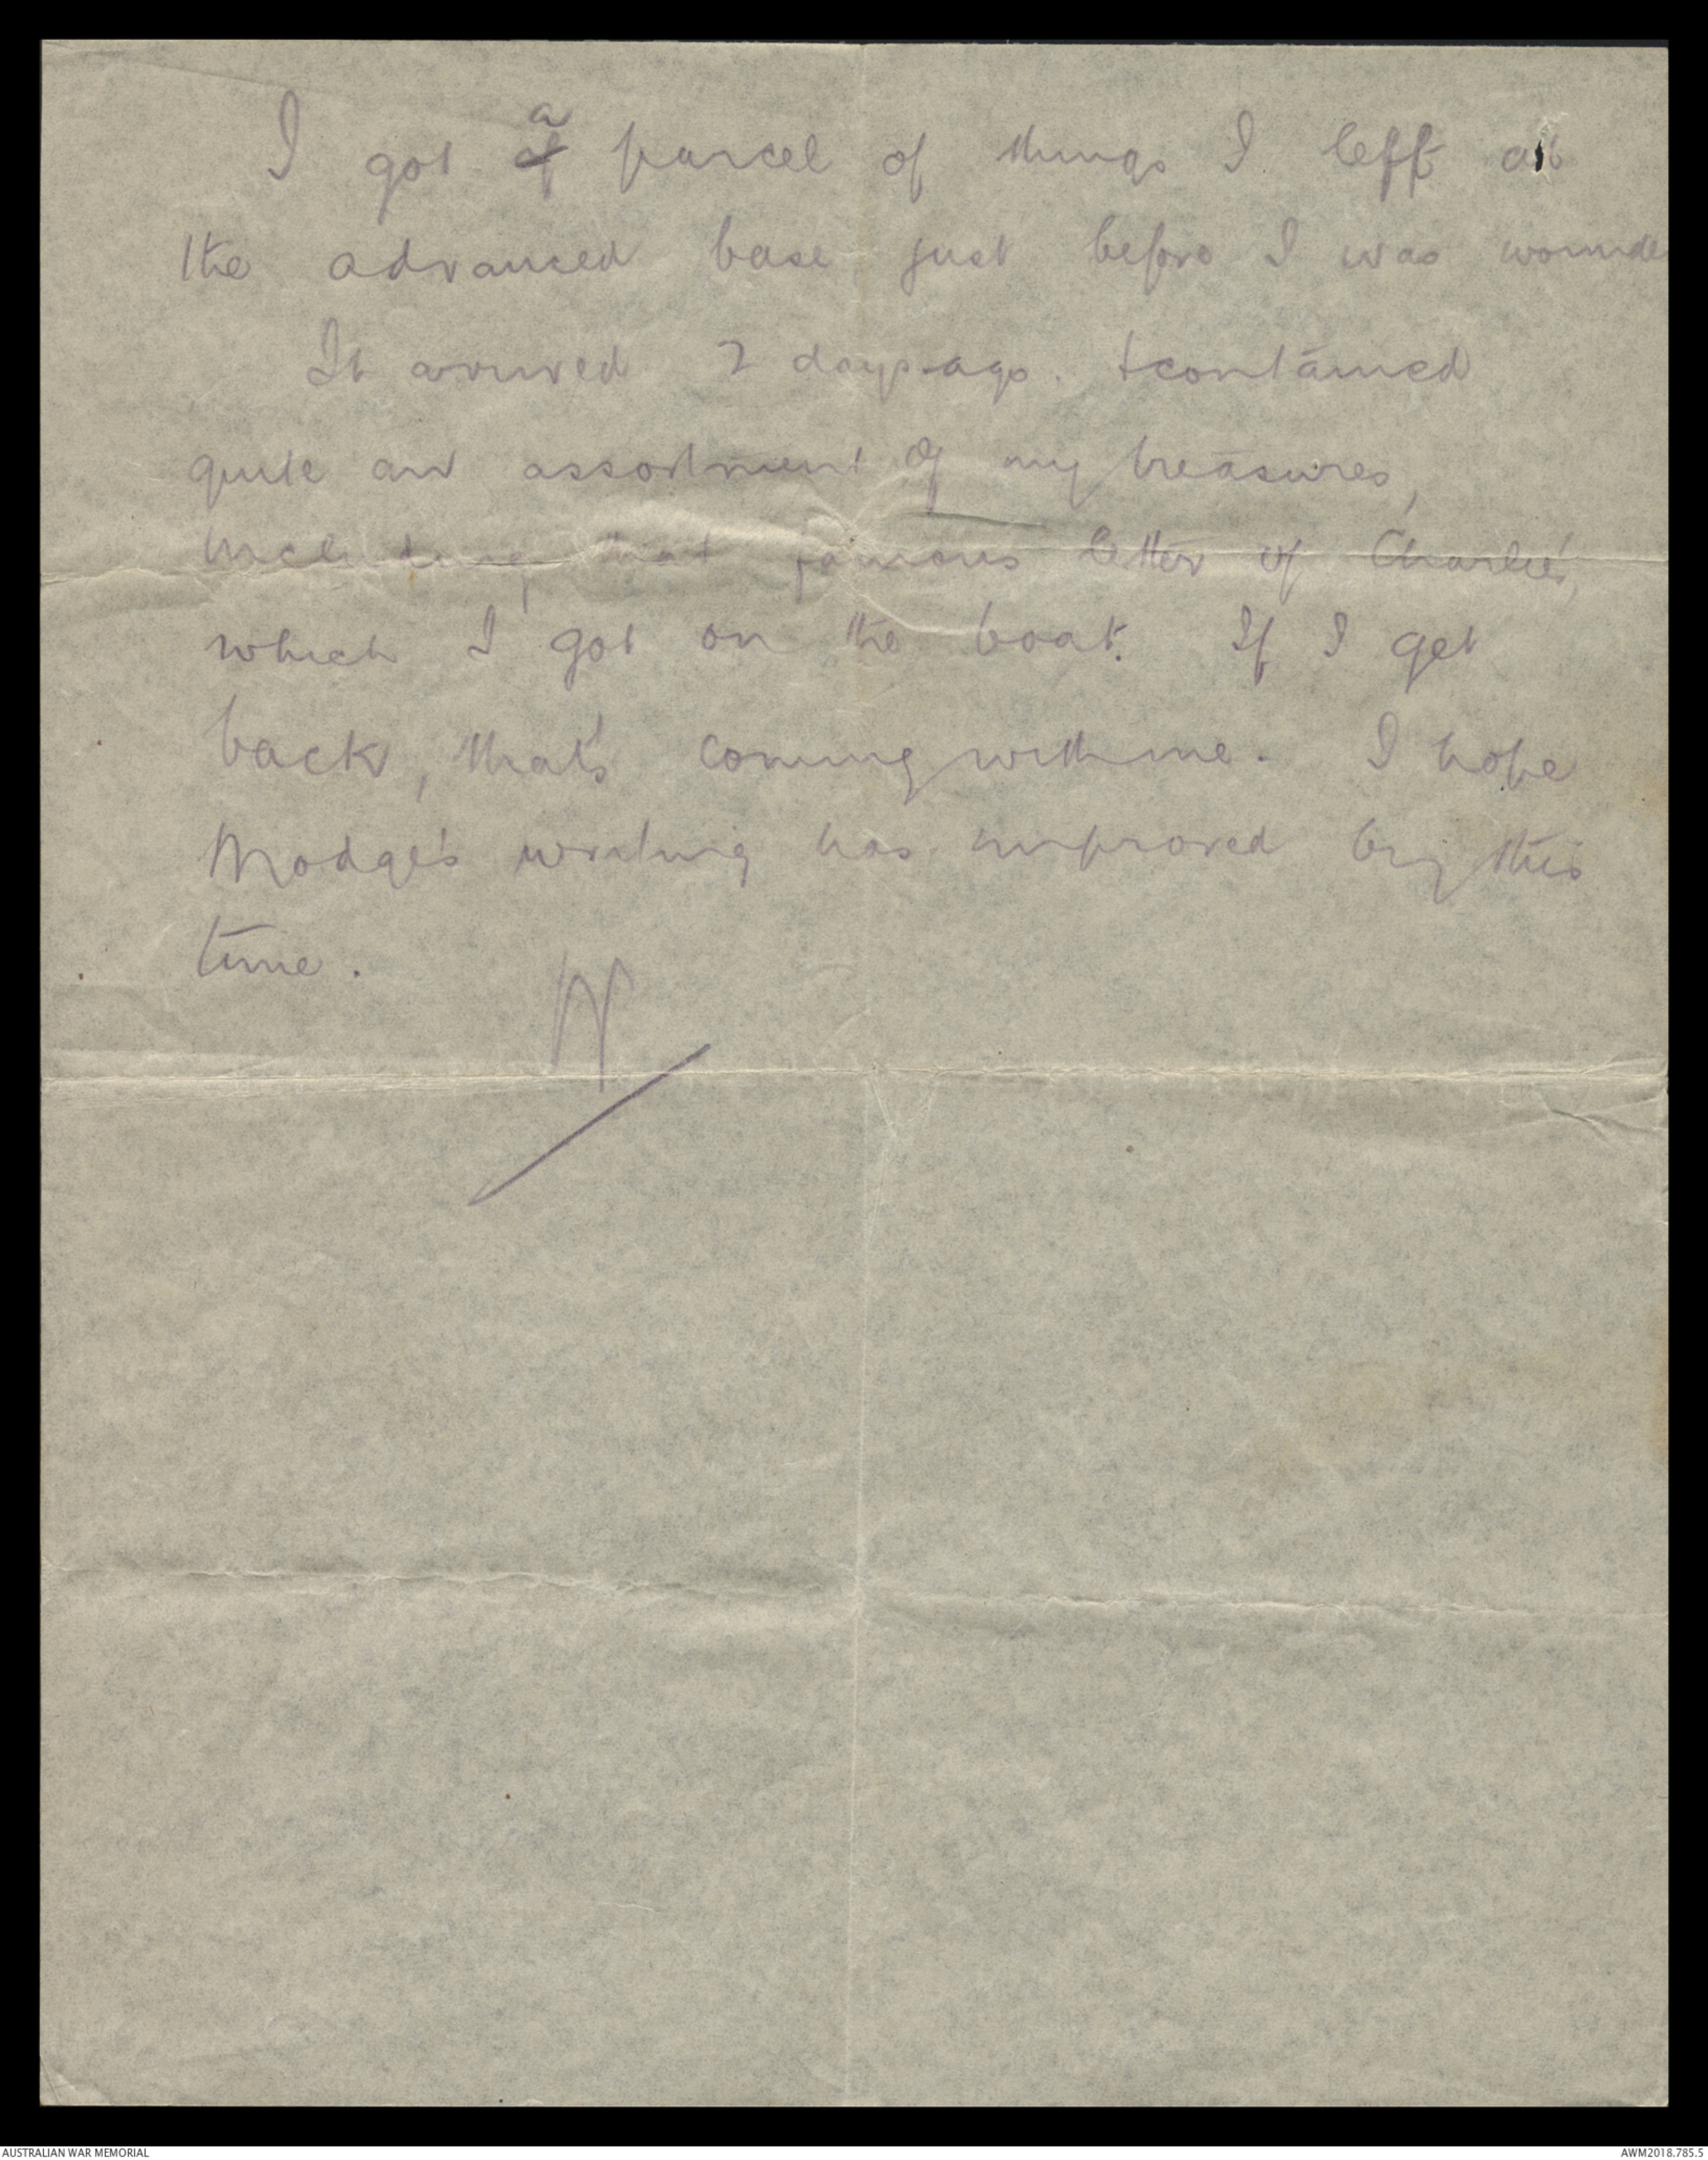 I got a parcel of things I left at
the advanced base just before I was wounde
It arrived 2 days ago. & contained
quite an assortment of my treasures,
including that famous letter of Charlie's,
which I got on the boat. If I get
back, that's coming with me. I hope
Modge's writing has improved by this
time.
AUSTRALIAN WAR MEMORIAL
AWM2018.785.5